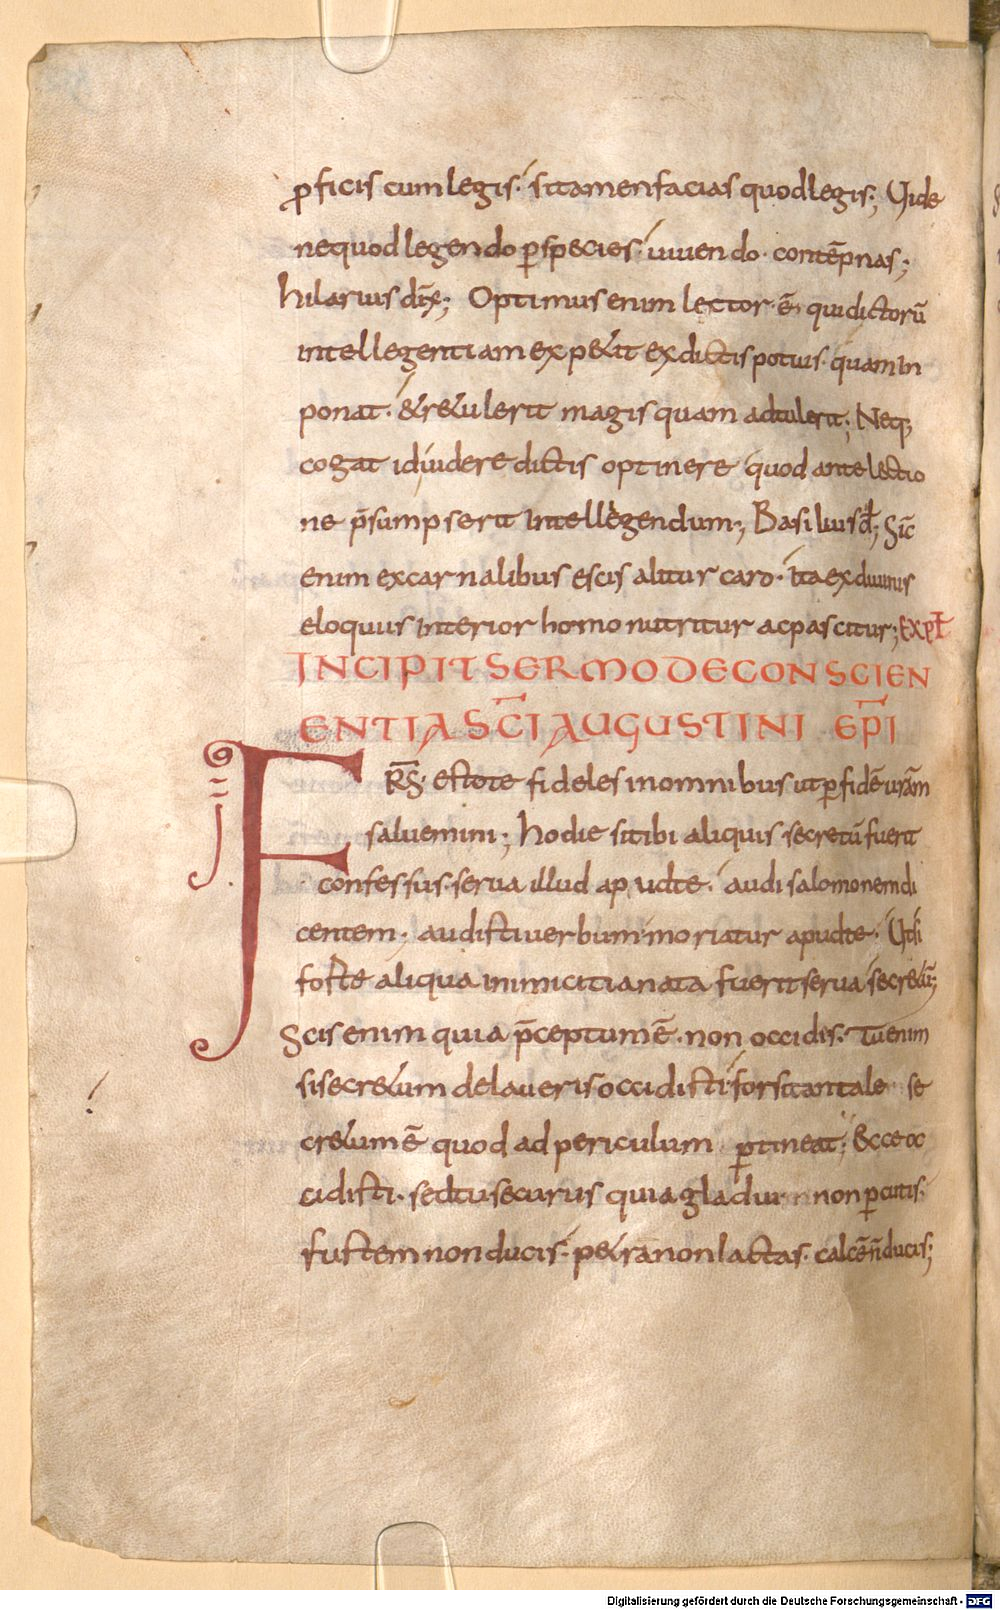 ꝓficis cum legis · si tamen facias quod legis; Vide
ne quod legendo ꝑspecies · uiuendo · contēpnas;
hilarius dix̄; Optimus enim lector · ē qui dictorū
intellegentiam exp&it ex dictis potius · quam in
ponat · & r&ulerit magis quam adtulerit; Neq;
cogat id uidere dictis optinere quod ante lectio
ne p̄sumpserit intellegendum; Basilius dt̄; Sic̄
enim ex carnalibus escis alitur caro · ita ex diuinis
eloquiis interior homo nutritur ac pascitur; EXPT̄
INCIPIT SERMO DE CONSCIEN
ENTIA SC̄I AUGUSTINI EP̄I
FR̄S · estote fideles in omnibus ut ꝑ fidē ur̄am
saluemini; hodie si tibi aliquis secretū fuerit
confessus · serua illud apud te · audi salomonem di
centem · audisti uerbum · moriatur apud te · Vbi
fo͛te aliqua inimicitia nata fuerit serua secr&ū;
Scis enim quia p̄ceptum ē · non occidis · Tu enim
si secr&um delaueris occidisti · forsitan tale se
cr&um ē quod ad periculum ꝑtineat; Ecce oc
cidisti · sed tu securus quia gladium non ꝑcutis ·
fustem non ducis · p&ra non lactas · calcē n̄ ducis;
Digitalisierung gefördert durch die Deutsche Forschungsgemeinschaft - DFG